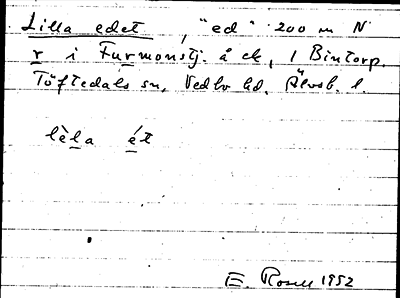 Lilla edet, "ed" 200 m N
r i Furmonstj. å ek, 1 Bintorp.
Töftedals sn, Vedbo hd. Älvsb. l.
lèla ét
E. Rosell 1952